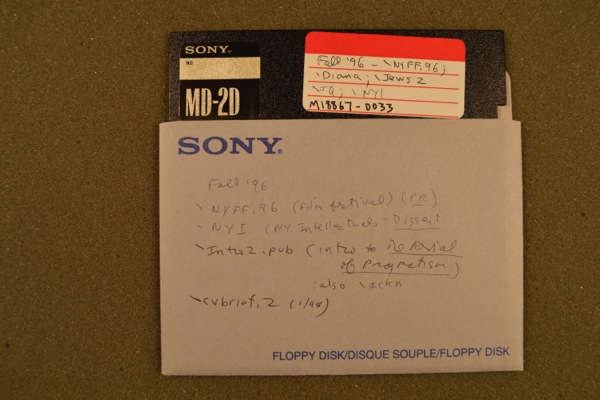 SONY
NO
MD-2D
Fall '96 - \NYFF.96;
\Diana; \Jews 2
\NYI
M18867-D033
SONY
Fall '96
\NYFF.96 (film festival) (PR)
\NYI (NY Intellectuals - Dissent
\Intro2.pub (intro to Revival
of Pragmatism)
;also \ackn
\cvbrief.2 (1/99)
FLOPPY DISK/DISQUE SOUPLE/FLOPPY DISK